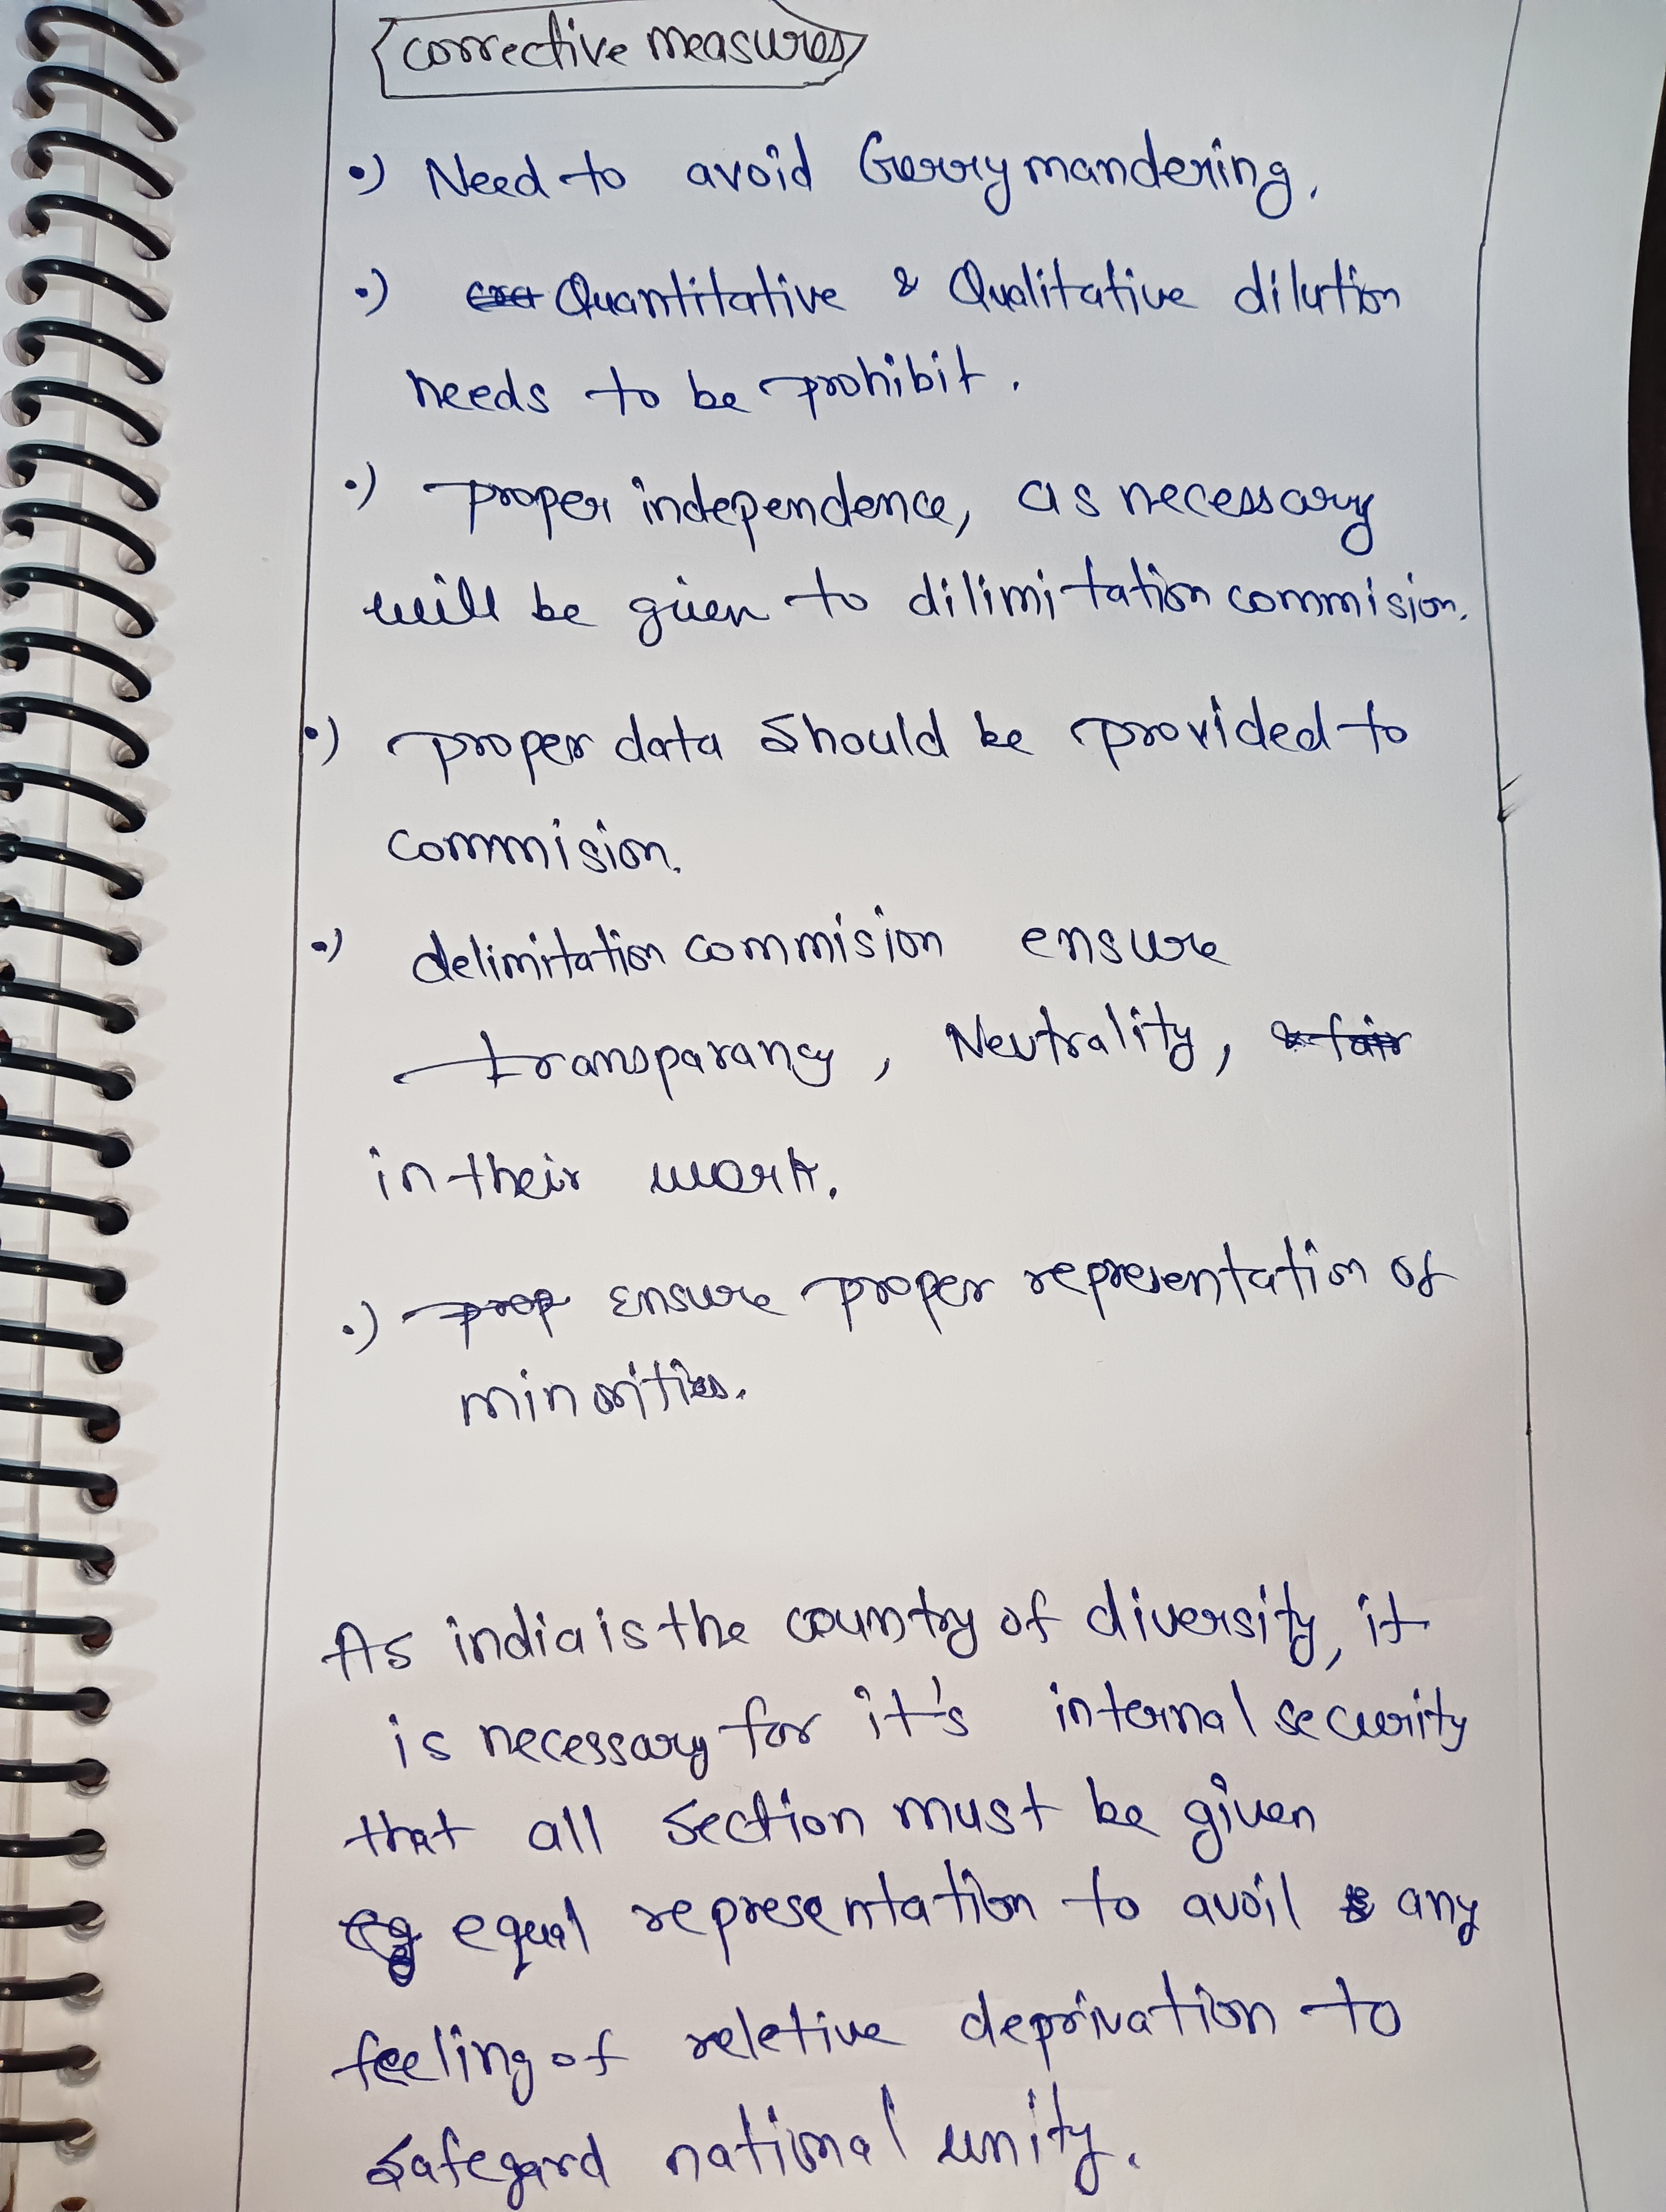 corrective measures
•) Need to avoid Gerrymandering.
•) Quantitative & Qualitative dilution
needs to be prohibit.
•) proper independence, as necessary
will be given to dilimitation commision.
•) proper data should be provided to
commision.
•) delimitation commision ensure
transparancy, Neutrality, & fair
in their work.
•) prop ensure proper representation of
minorities.
As india is the country of diversity, it
is necessary for it's internal security
that all section must be given
equal representation to avoil any
feeling of reletive deprivation to
safegard national unity.